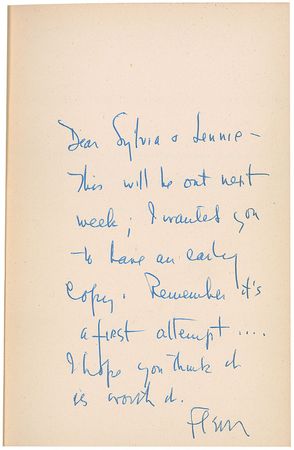 Dear Sylvia & Lennie –
This will be out next
week; I wanted you
to have an early
copy. Remember it's
a first attempt....
I hope you think it
is worth it.